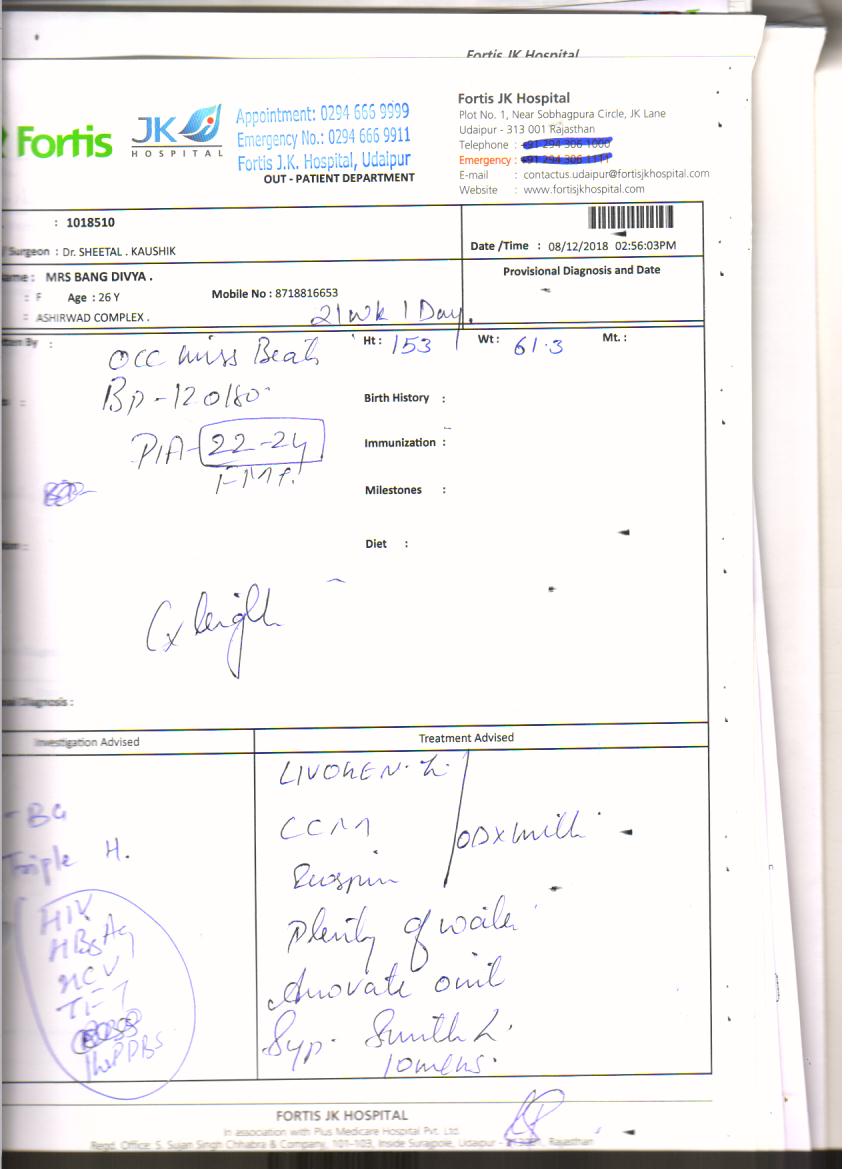 Fortis JK Hospital
Fortis
JK
HOSPITAL
Appointment: 0294 666 9999
Emergency No.: 0294 666 9911
Fortis J.K. Hospital, Udaipur
OUT - PATIENT DEPARTMENT
Fortis JK Hospital
Plot No. 1, Near Sobhagpura Circle, JK Lane
Udaipur - 313 001 Rajasthan
Telephone : +91 294 306 1000
Emergency : +91 294 306 1111
E-mail : contactus.udaipur@fortisjkhospital.com
Website : www.fortisjkhospital.com
: 1018510
/ Surgeon : Dr. SHEETAL . KAUSHIK
Date /Time : 08/12/2018 02:56:03PM
ame : MRS BANG DIVYA .
Provisional Diagnosis and Date
: F Age : 26 Y
Mobile No : 8718816653
: ASHIRWAD COMPLEX .
21 wk 1 Day.
tten By :
Occ miss Beats
Ht : 153
Wt : 61.3
Mt. :
BP - 120/80
Birth History :
P/A - 22-24
Immunization :
Milestones :
Diet :
Cx length
nal Diagnosis :
Investigation Advised
Treatment Advised
LIVOGEN-Z
- BG
CCM
OD x milk
Triple H.
Ecospin
HIV
HBsAg
HCV
Plenty of water
Anovate oint
Syp. Smuth L.
10
FORTIS JK HOSPITAL
In association with Plus Medicare Hospital Pvt. Ltd.
Regd. Office: S. Sujan Singh Chhabra & Company, 101-103, Inside Surajpole, Udaipur - Rajasthan